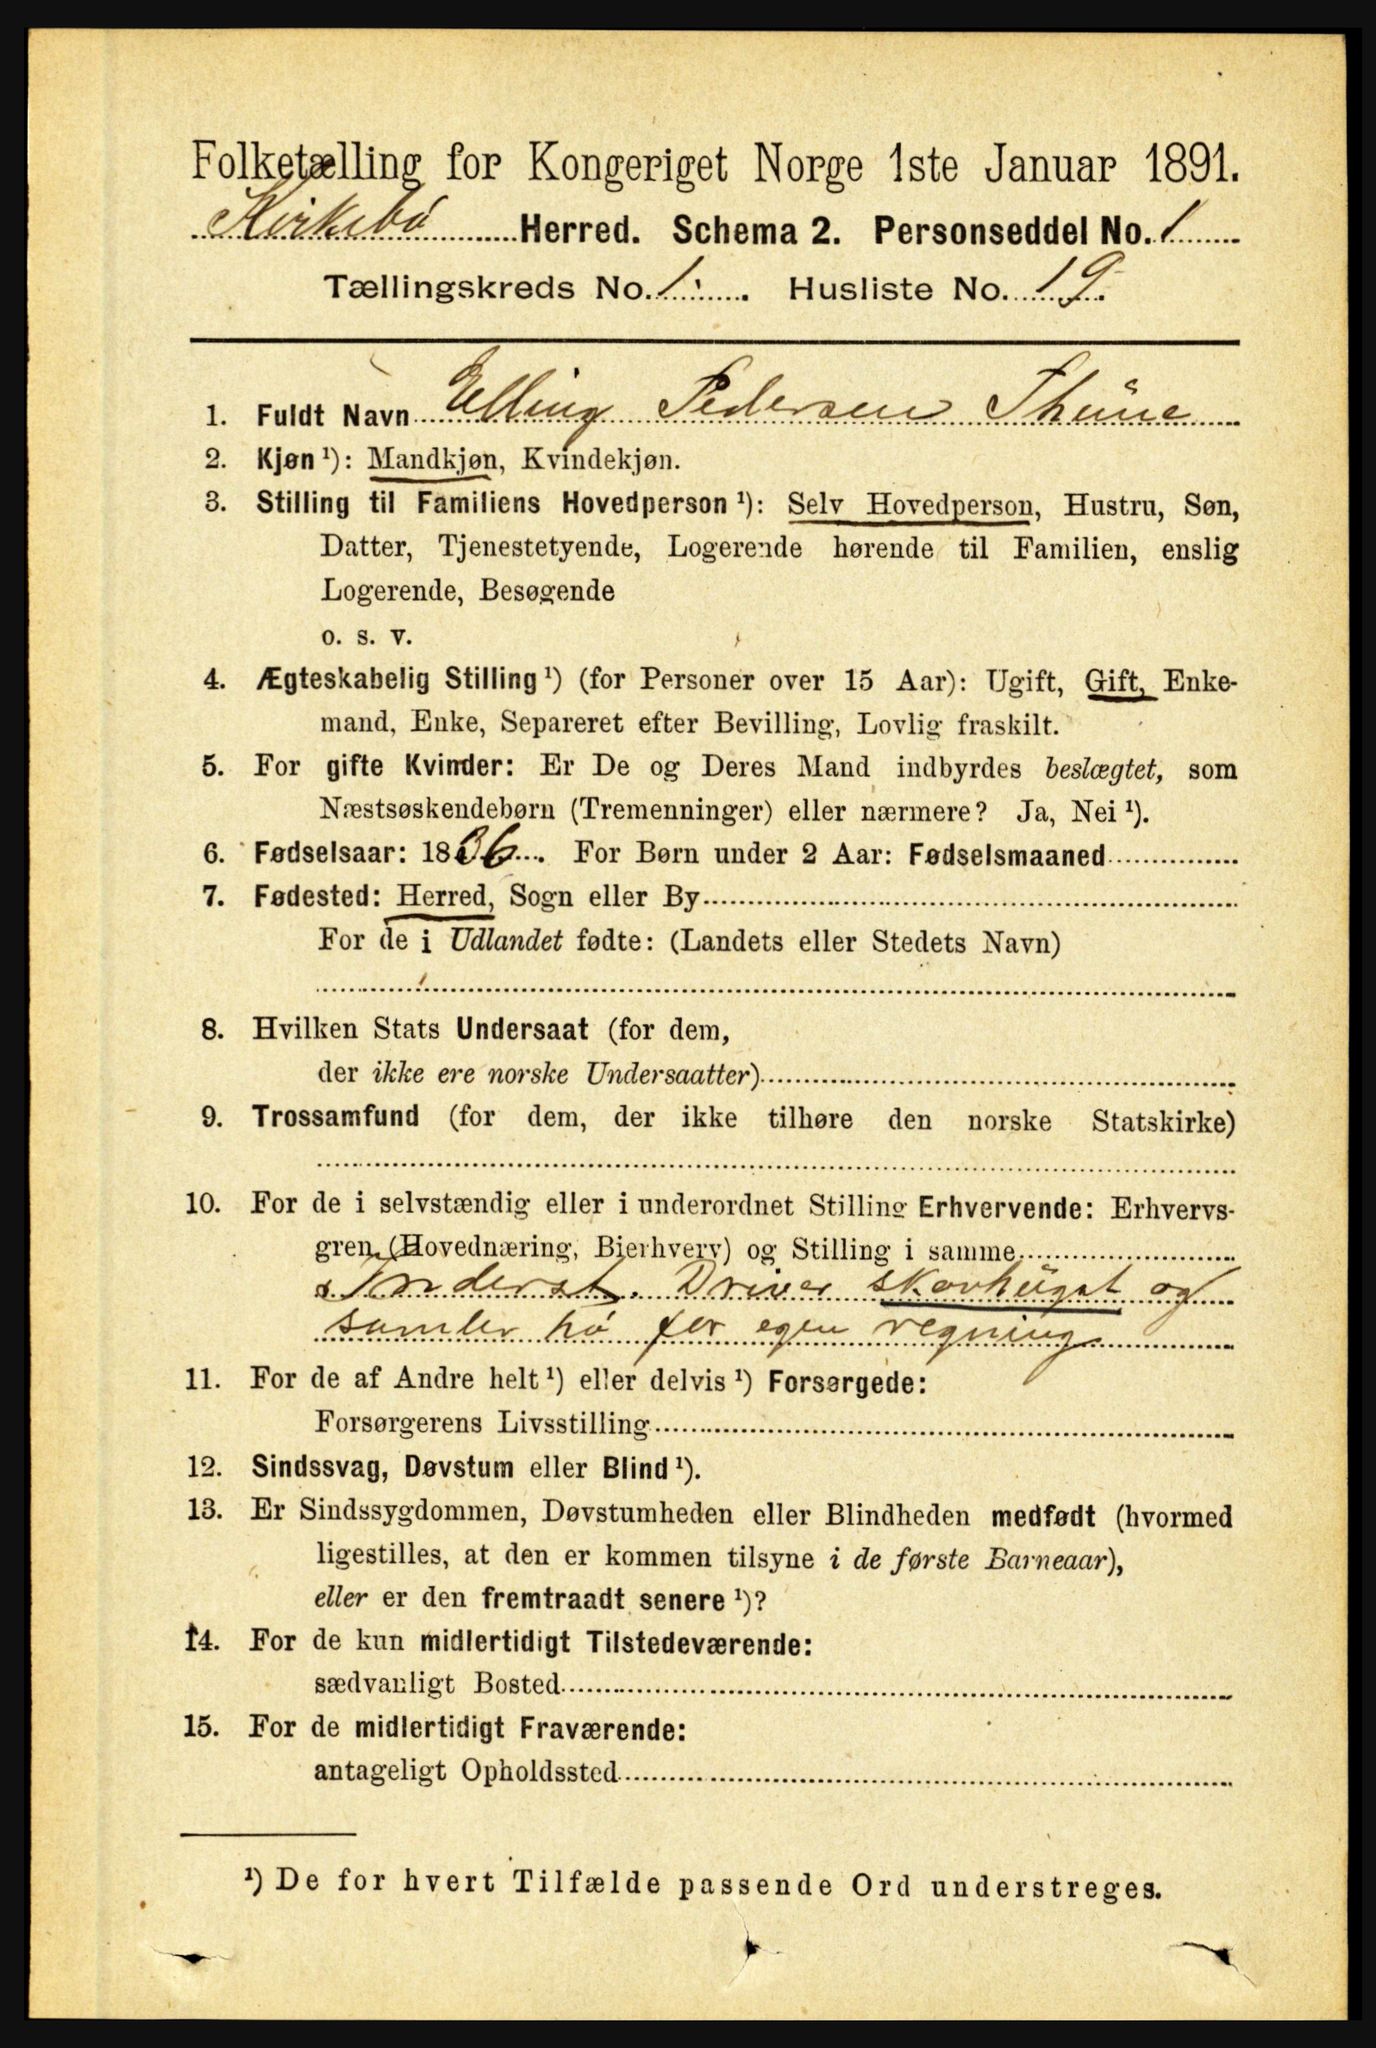 Folketælling for Kongeriget Norge 1ste Januar 1891.
Kirkebø Herred. Schema 2. Personseddel No. 1
Tællingskreds No. 1. Husliste No. 19.
1. Fuldt Navn Elling Pedersen Thune
2. Kjøn ¹): Mandkjøn, Kvindekjøn.
3. Stilling til Familiens Hovedperson ¹): Selv Hovedperson, Hustru, Søn,
Datter, Tjenestetyende, Logerende hørende til Familien, enslig
Logerende, Besøgende
o. s. v.
4. Ægteskabelig Stilling ¹) (for Personer over 15 Aar): Ugift, Gift, Enke-
mand, Enke, Separeret efter Bevilling, Lovlig fraskilt.
5. For gifte Kvinder: Er De og Deres Mand indbyrdes beslægtet, som
Næstsøskendebørn (Tremenninger) eller nærmere? Ja, Nei ¹).
6. Fødselsaar: 1836. For Børn under 2 Aar: Fødselsmaaned
7. Fødested: Herred, Sogn eller By
For de i Udlandet fødte: (Landets eller Stedets Navn)
8. Hvilken Stats Undersaat (for dem,
der ikke ere norske Undersaatter)
9. Trossamfund (for dem, der ikke tilhøre den norske Statskirke)
10. For de i selvstændig eller i underordnet Stilling Erhvervende: Erhvervs-
gren (Hovednæring, Bierhverv) og Stilling i samme
Inderst. Driver skovhugst og
samler hø for egen regning
11. For de af Andre helt ¹) eller delvis ¹) Forsørgede:
Forsørgerens Livsstilling
12. Sindssvag, Døvstum eller Blind ¹).
13. Er Sindssygdommen, Døvstumheden eller Blindheden medfødt (hvormed
ligestilles, at den er kommen tilsyne i de første Barneaar),
eller er den fremtraadt senere ¹)?
14. For de kun midlertidigt Tilstedeværende:
sædvanligt Bosted
15. For de midlertidigt Fraværende:
antageligt Opholdssted
¹) De for hvert Tilfælde passende Ord understreges.